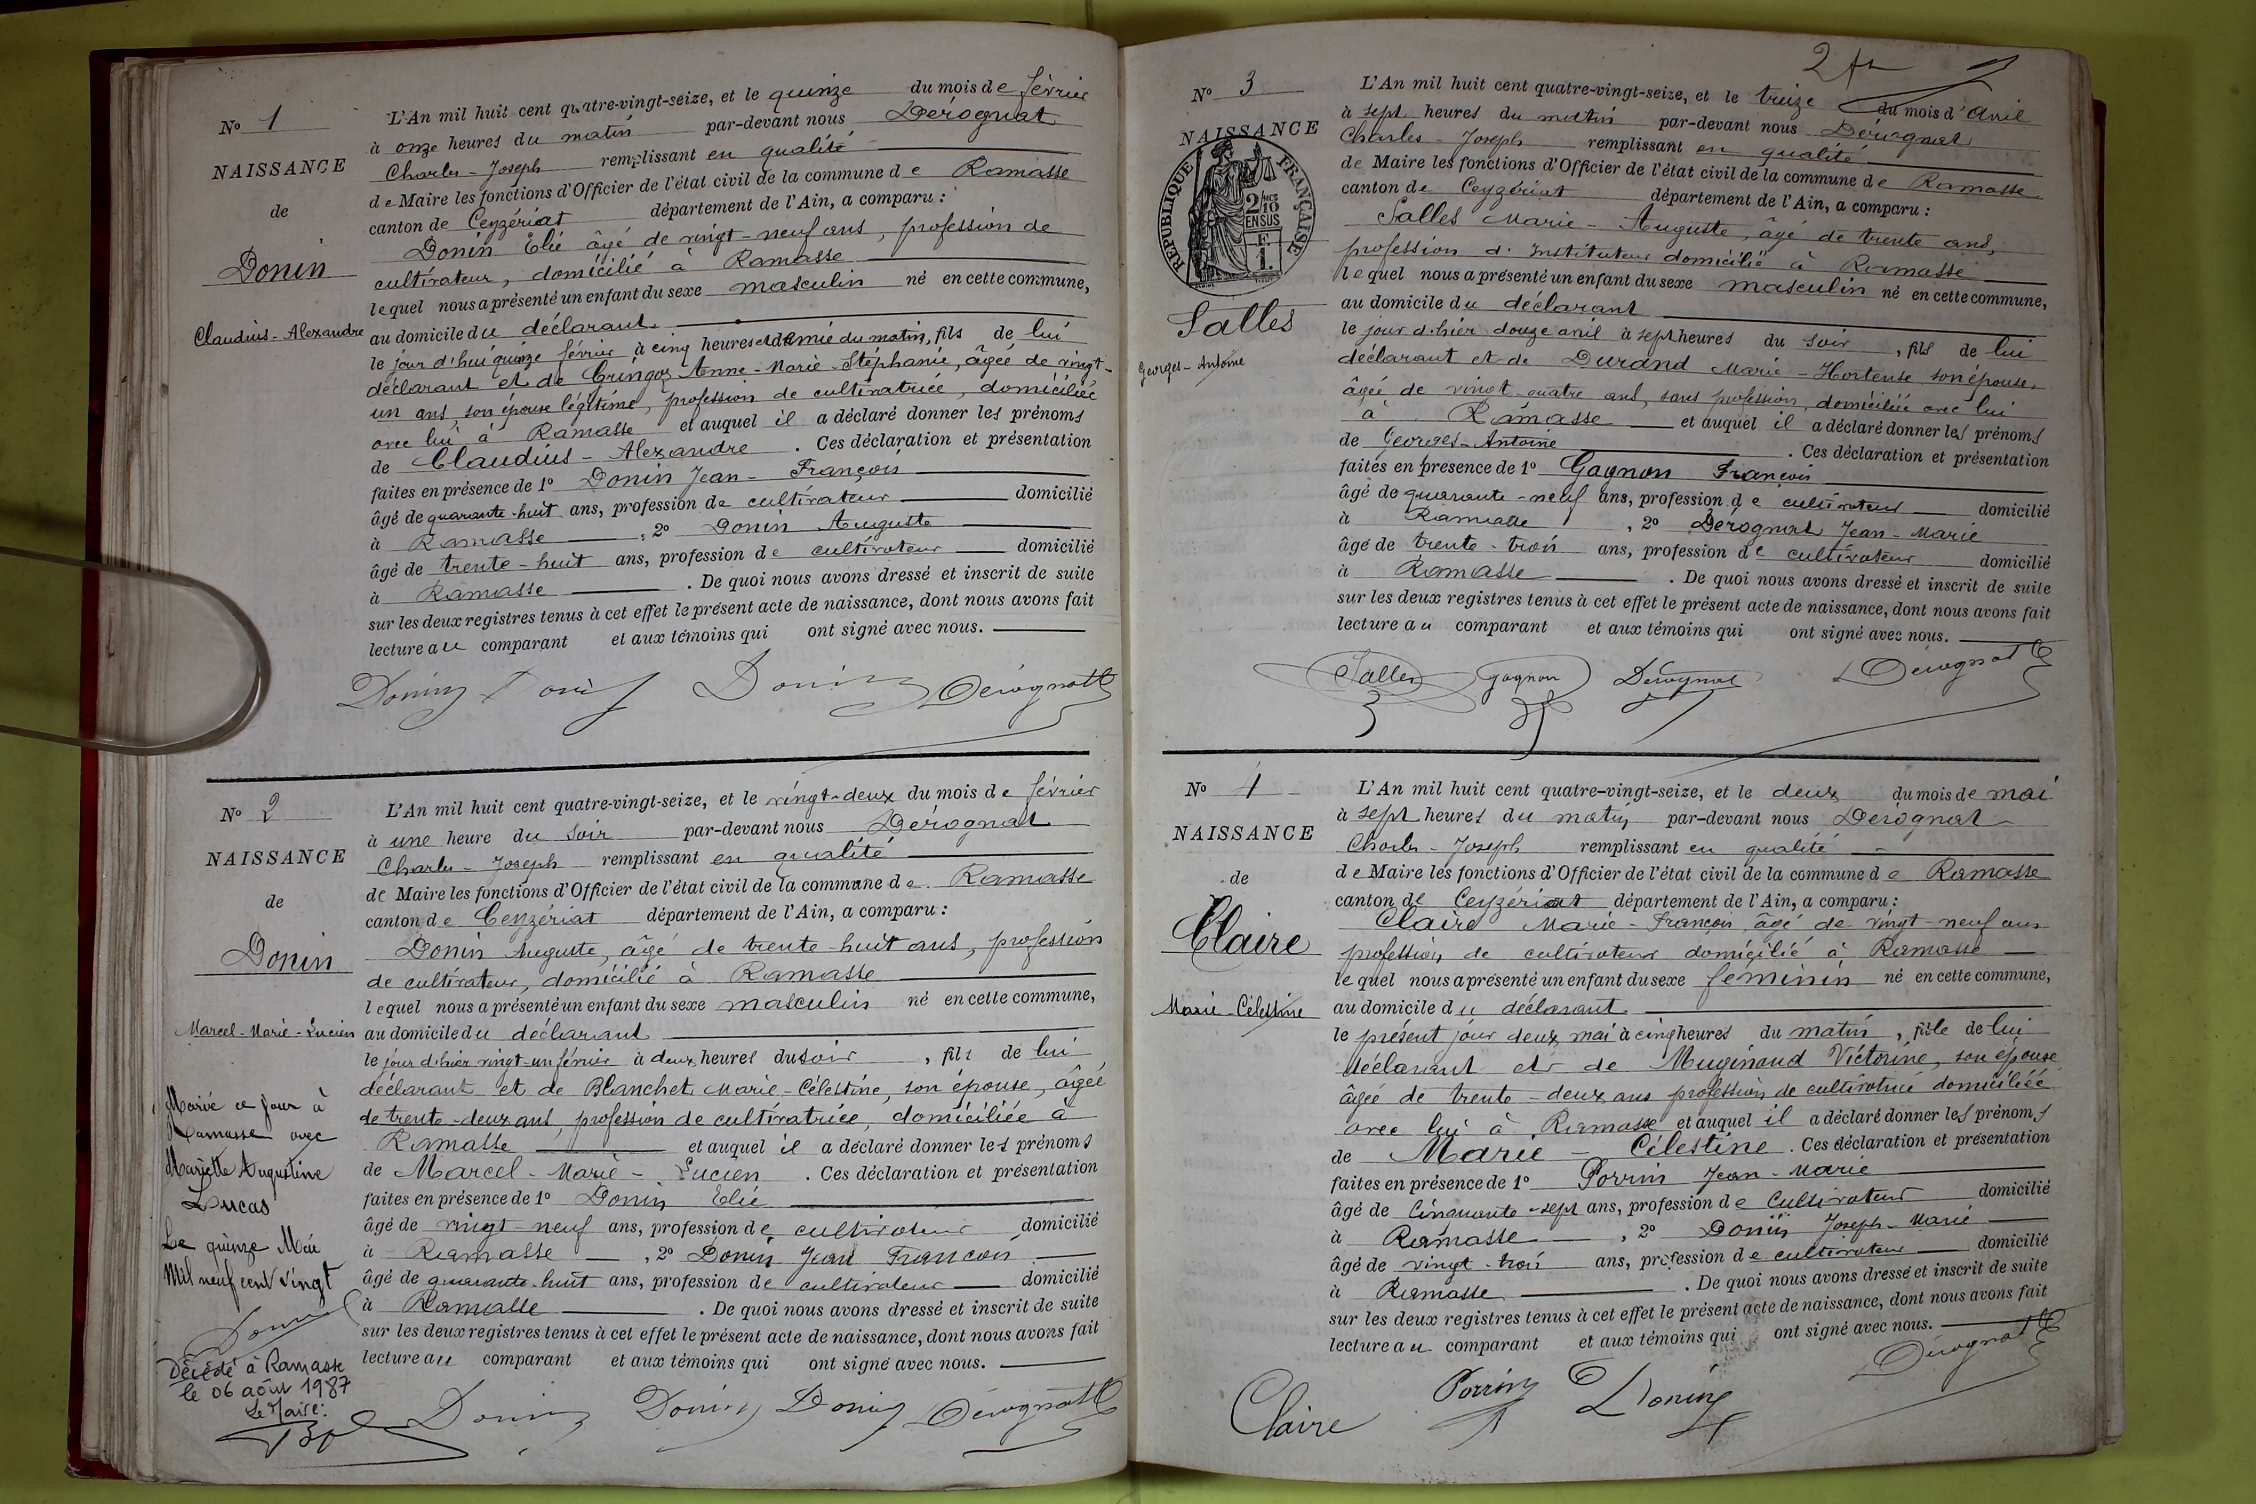 N° 1
NAISSANCE
de
Donin
Claudius-Alexandre
L'An mil huit cent quatre-vingt-seize, et le quinze du mois de février
à onze heures du matin par-devant nous Dérognat
Charles-Joseph remplissant en qualité
de Maire les fonctions d'Officier de l'état civil de la commune de Ramasse
canton de Ceyzériat département de l'Ain, a comparu :
Donin Elie âgé de vingt-neuf ans, profession de
cultivateur, domicilié à Ramasse
lequel nous a présenté un enfant du sexe masculin né en cette commune,
au domicile du déclarant
le jour d'hui quinze février à cinq heures et demie du matin, fils de lui
déclarant et de Gringoz Anne-Marie-Stéphanie, âgée de vingt-
un ans son épouse légitime, profession de cultivatrice, domiciliée
avec lui à Ramasse et auquel il a déclaré donner les prénoms
de Claudius-Alexandre. Ces déclaration et présentation
faites en présence de 1° Donin Jean-François
âgé de quarante-huit ans, profession de cultivateur domicilié
à Ramasse, 2° Donin Auguste
âgé de trente-huit ans, profession de cultivateur domicilié
à Ramasse. De quoi nous avons dressé et inscrit de suite
sur les deux registres tenus à cet effet le présent acte de naissance, dont nous avons fait
lecture au comparant et aux témoins qui ont signé avec nous.
Donin Donin Donin Dérognat
N° 2
NAISSANCE
de
Donin
Marcel-Marie-Lucien
Marié ce jour à
Ramasse avec
Mariette Augustine
Lucas
Le quinze Mai
Mil neuf cent vingt
Décédé à Ramasse
le 06 août 1987
Le Maire :
L'An mil huit cent quatre-vingt-seize, et le vingt-deux du mois de février
à une heure du soir par-devant nous Dérognat
Charles-Joseph remplissant en qualité
de Maire les fonctions d'Officier de l'état civil de la commune de Ramasse
canton de Ceyzériat département de l'Ain, a comparu :
Donin Auguste, âgé de trente-huit ans, profession
de cultivateur, domicilié à Ramasse
lequel nous a présenté un enfant du sexe masculin né en cette commune,
au domicile du déclarant
le jour d'hier vingt-un février à deux heures du soir, fils de lui
déclarant et de Blanchet Marie-Célestine, son épouse, âgée
de trente-deux ans, profession de cultivatrice, domiciliée à
Ramasse et auquel il a déclaré donner les prénoms
de Marcel-Marie-Lucien. Ces déclaration et présentation
faites en présence de 1° Donin Elie
âgé de vingt-neuf ans, profession de cultivateur domicilié
à Ramasse, 2° Donin Jean François
âgé de quarante-huit ans, profession de cultivateur domicilié
à Ramasse. De quoi nous avons dressé et inscrit de suite
sur les deux registres tenus à cet effet le présent acte de naissance, dont nous avons fait
lecture au comparant et aux témoins qui ont signé avec nous.
Donin Donin Donin Dérognat
N° 3
NAISSANCE
RÉPUBLIQUE FRANÇAISE
2/10
EN SUS
Salles
Georges-Antoine
L'An mil huit cent quatre-vingt-seize, et le treize du mois d'avril
à sept heures du matin par-devant nous Dérognat
Charles-Joseph remplissant en qualité
de Maire les fonctions d'Officier de l'état civil de la commune de Ramasse
canton de Ceyzériat département de l'Ain, a comparu :
Salles Marie-Auguste, âgé de trente ans,
profession d'Instituteur domicilié à Ramasse
lequel nous a présenté un enfant du sexe masculin né en cette commune,
au domicile du déclarant
le jour d'hier douze avril à sept heures du soir, fils de lui
déclarant et de Durand Marie-Hortense son épouse
âgée de vingt-quatre ans, sans profession, domiciliée avec lui
à Ramasse et auquel il a déclaré donner les prénoms
de Georges-Antoine. Ces déclaration et présentation
faites en présence de 1° Gagnon François
âgé de quarante-neuf ans, profession de cultivateur domicilié
à Ramasse, 2° Dérognat Jean-Marie
âgé de trente-trois ans, profession de cultivateur domicilié
à Ramasse. De quoi nous avons dressé et inscrit de suite
sur les deux registres tenus à cet effet le présent acte de naissance, dont nous avons fait
lecture au comparant et aux témoins qui ont signé avec nous.
Salles Gagnon Dérognat Dérognat
N° 4
NAISSANCE
de
Claire
Marie-Célestine
L'An mil huit cent quatre-vingt-seize, et le deux du mois de mai
à sept heures du matin par-devant nous Dérognat
Charles-Joseph remplissant en qualité
de Maire les fonctions d'Officier de l'état civil de la commune de Ramasse
canton de Ceyzériat département de l'Ain, a comparu :
Claire Marie-François âgé de vingt-neuf ans
profession de cultivateur domicilié à Ramasse
lequel nous a présenté un enfant du sexe feminin né en cette commune,
au domicile du déclarant
le présent jour deux mai à cinq heures du matin, fille de lui
déclarant et de Muginaud Victorine, son épouse
âgée de trente-deux ans profession de cultivatrice domiciliée
avec lui à Ramasse et auquel il a déclaré donner les prénoms
de Marie-Célestine. Ces déclaration et présentation
faites en présence de 1° Porrin Jean-Marie
âgé de cinquante-sept ans, profession de cultivateur domicilié
à Ramasse, 2° Donin Joseph-Marie
âgé de vingt-trois ans, profession de cultivateur domicilié
à Ramasse. De quoi nous avons dressé et inscrit de suite
sur les deux registres tenus à cet effet le présent acte de naissance, dont nous avons fait
lecture au comparant et aux témoins qui ont signé avec nous.
Claire Porrin Donin Dérognat